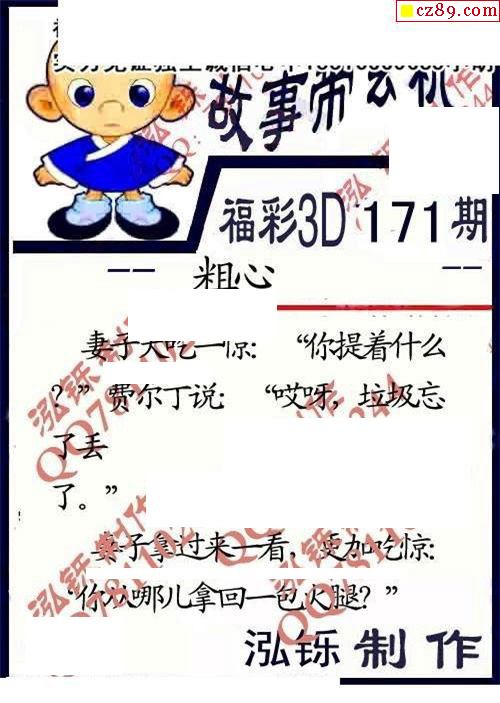 cz89.com
故事带玄机
福彩3D 171期
粗心
妻子大吃一惊：“你提着什么
？”费尔丁说：“哎呀，垃圾忘
了丢
了。”
妻子拿过来一看，更加吃惊：
“你从哪儿拿回一包火腿？”
泓铄制作